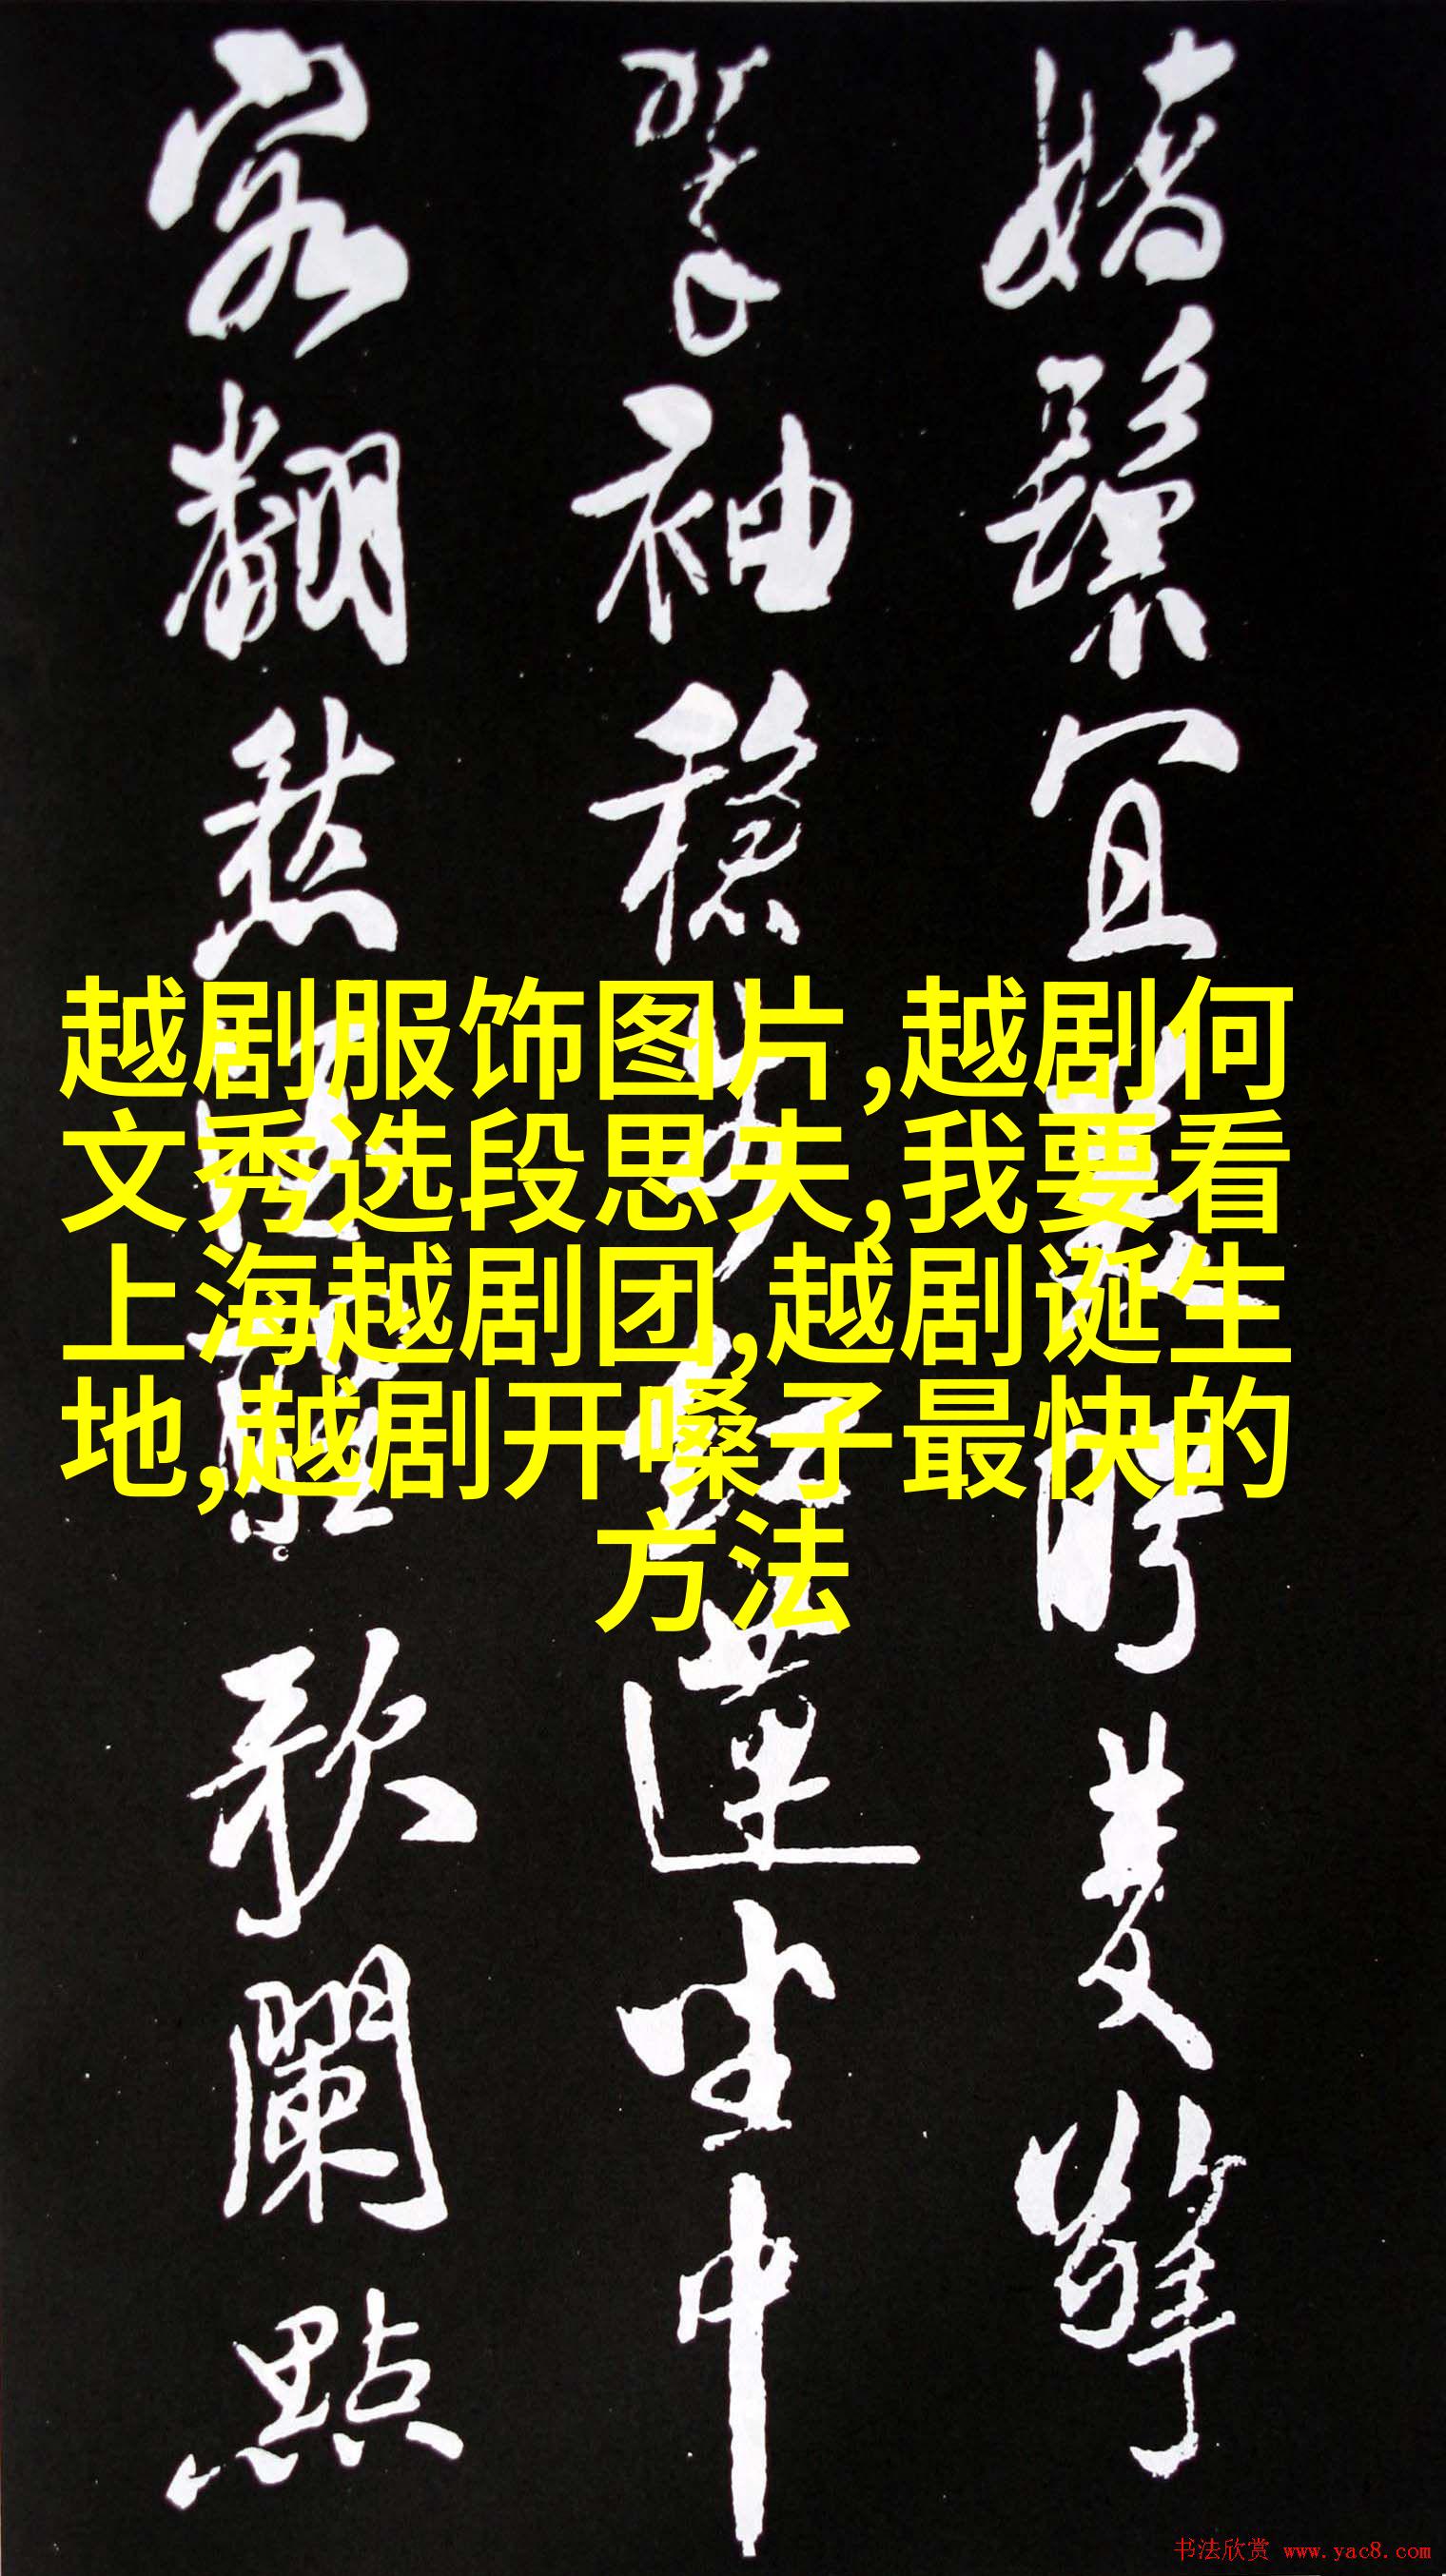 嬌鬟宜雙擎
翠袖穩蓮坐中
客翻愁歌闌點
越剧服饰图片,越剧何
文秀选段思夫,我要看
上海越剧团,越剧诞生
地,越剧开嗓子最快的
方法
书法欣赏 www.yac8.com